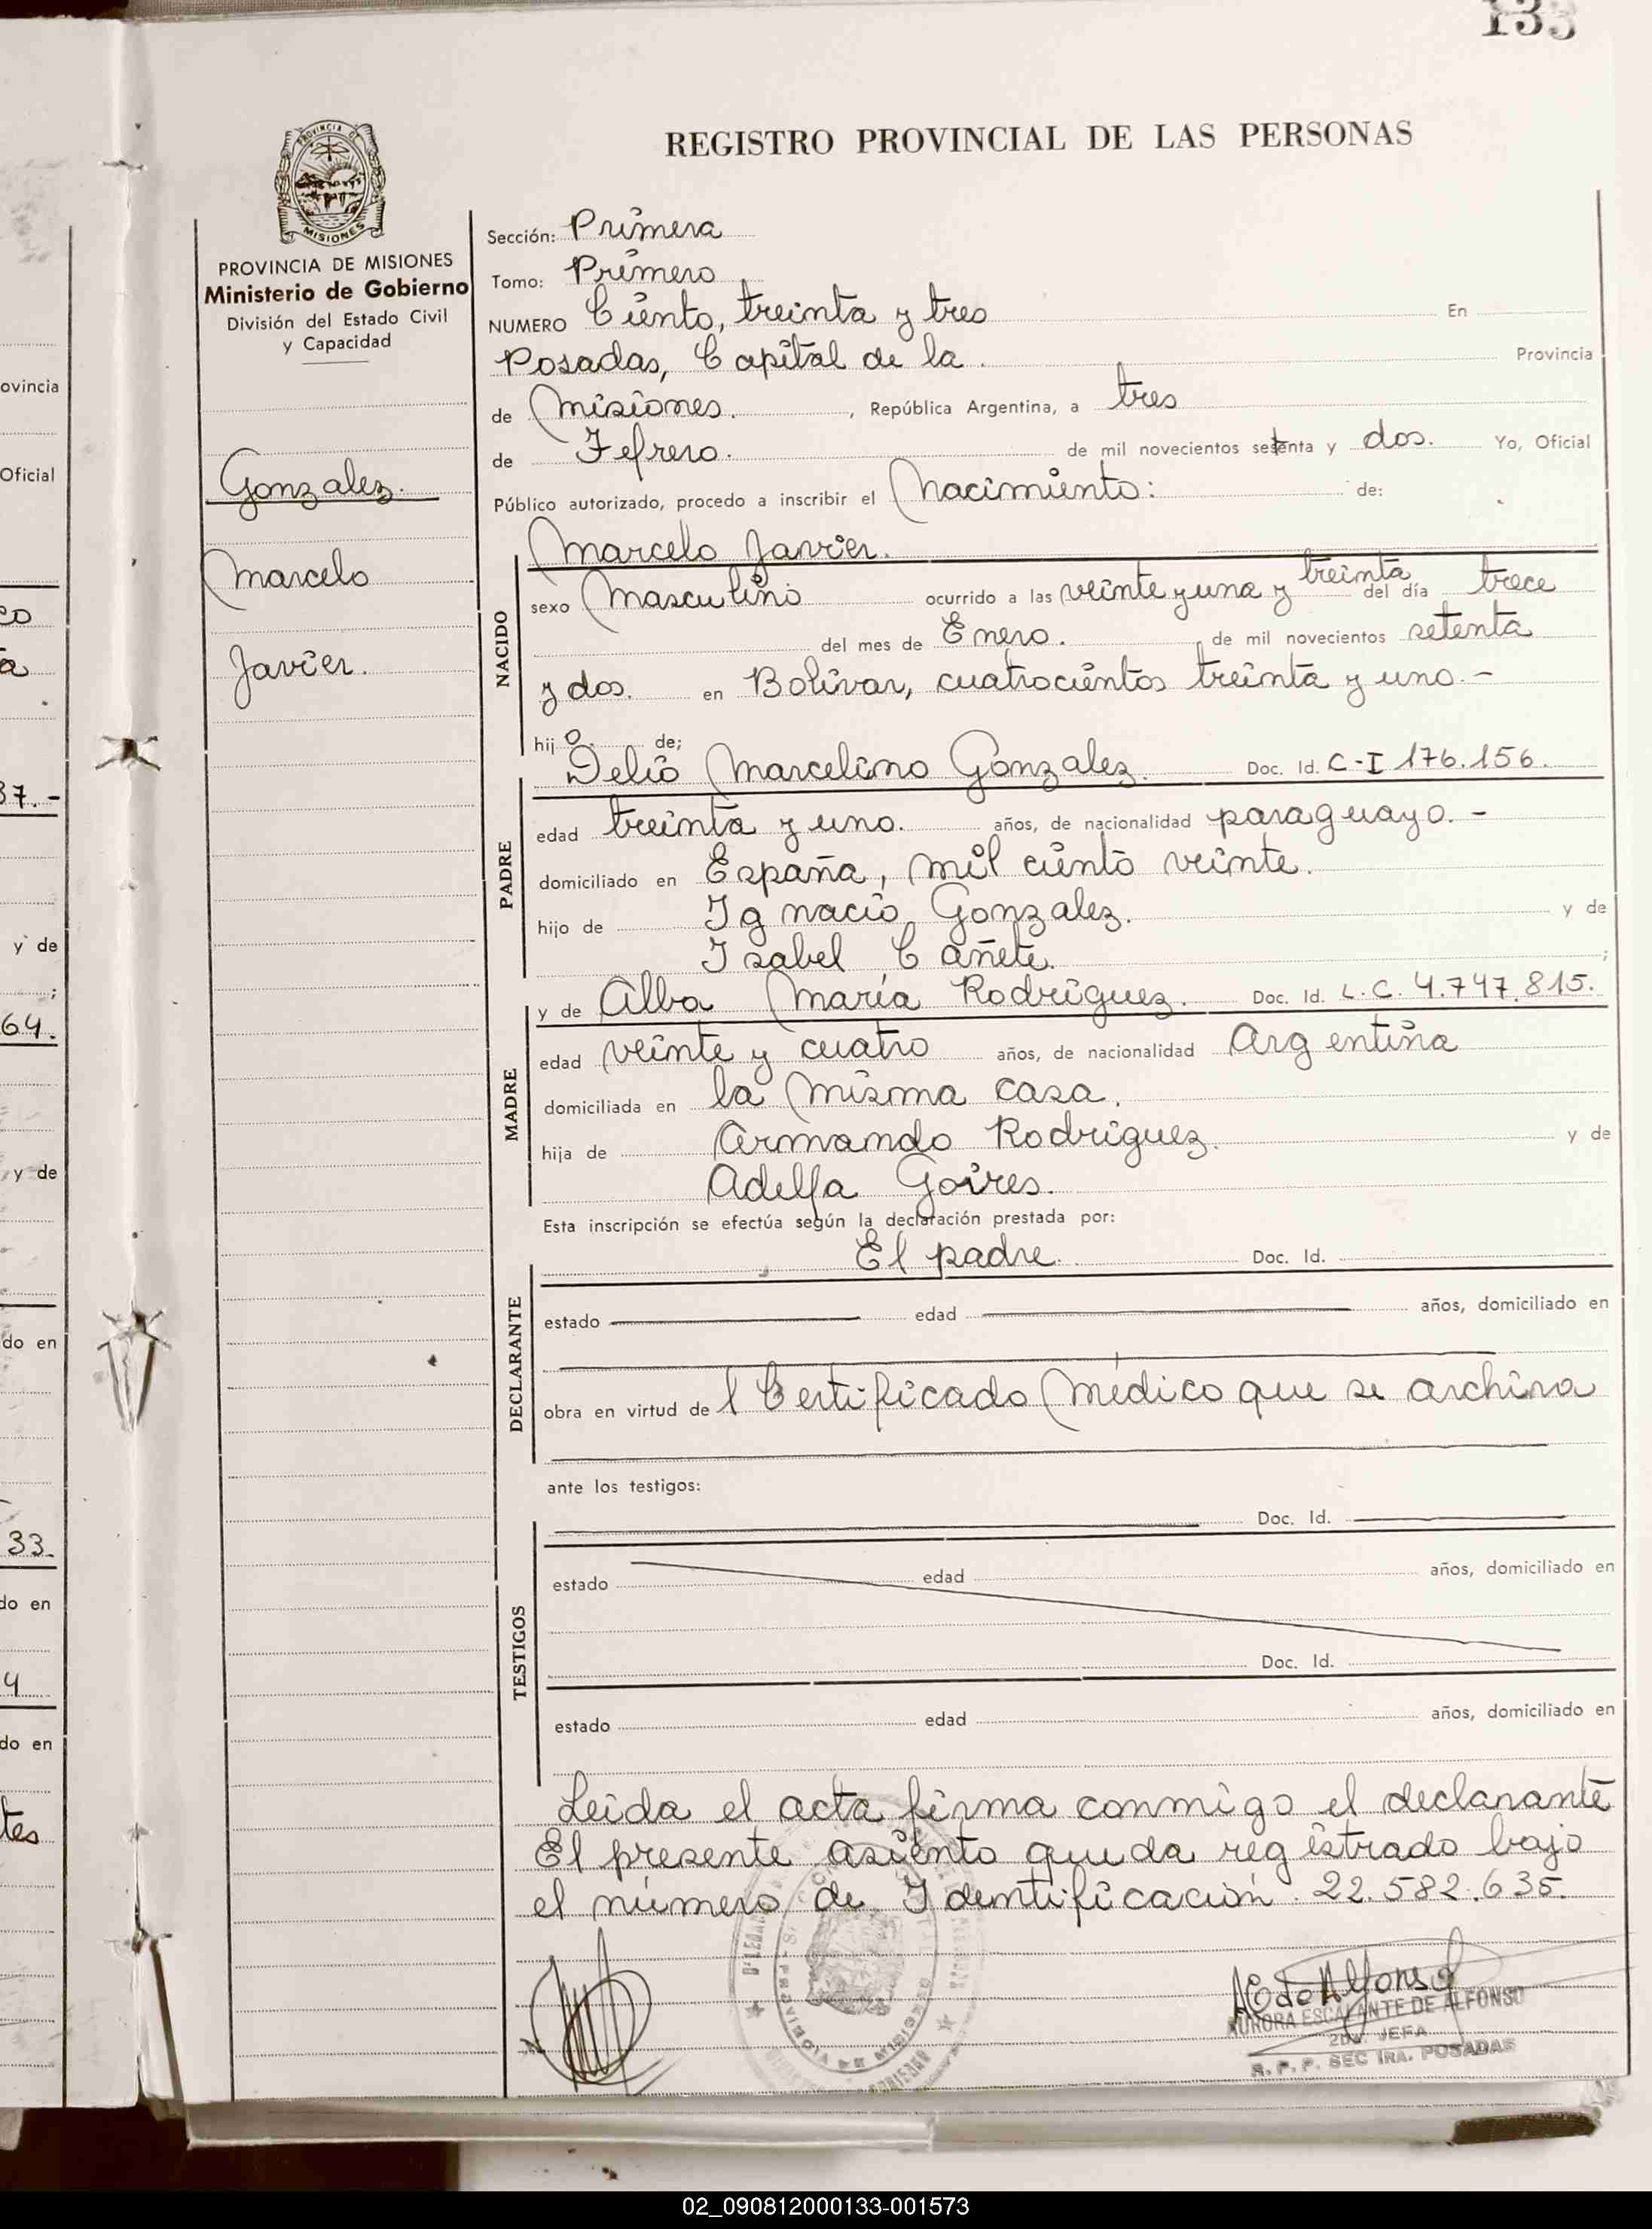 133
REGISTRO PROVINCIAL DE LAS PERSONAS
PROVINCIA DE
MISIONES
PROVINCIA DE MISIONES
Ministerio de Gobierno
División del Estado Civil
y Capacidad
Gonzalez.
Marcelo
Javier.
Sección: Primera
Tomo: Primero
NUMERO Ciento, treinta y tres En
Posadas, Capital de la Provincia
de Misiones. , República Argentina, a tres
de Febrero. de mil novecientos setenta y dos. Yo, Oficial
Público autorizado, procedo a inscribir el Nacimiento: de:
Marcelo Javier.
NACIDO
sexo Masculino ocurrido a las veinte y una y treinta del día trece
del mes de Enero. de mil novecientos setenta
y dos. en Bolívar, cuatrocientos treinta y uno.-
hijo de;
Delio Marcelino Gonzalez. Doc. Id. C-I 176.156.
PADRE
edad treinta y uno. años, de nacionalidad paraguayo.-
domiciliado en España, mil ciento veinte.
hijo de Ignacio Gonzalez. y de
Isabel Cañete. ;
y de Alba María Rodríguez. Doc. Id. L.C. 4.747.815.
MADRE
edad veinte y cuatro años, de nacionalidad Argentina
domiciliada en la misma casa.
hija de Armando Rodríguez. y de
Adelfa Goires.
Esta inscripción se efectúa según la declaración prestada por:
El padre. Doc. Id.
DECLARANTE
estado edad años, domiciliado en
obra en virtud del Certificado Médico que se archiva
ante los testigos:
Doc. Id.
TESTIGOS
estado edad años, domiciliado en
Doc. Id.
estado edad años, domiciliado en
Leída el acta firma conmigo el declarante
El presente asiento queda registrado bajo
el número de Identificación 22.582.635.
A E de Alfonso
AURORA ESCALANTE DE ALFONSO
2DA. JEFA
R. P. P. SEC 1RA. POSADAS
ovincia
Oficial
co
a
37.-
y de
;
64.
y de
do en
33.
do en
4
do en
tes
02_090812000133-001573